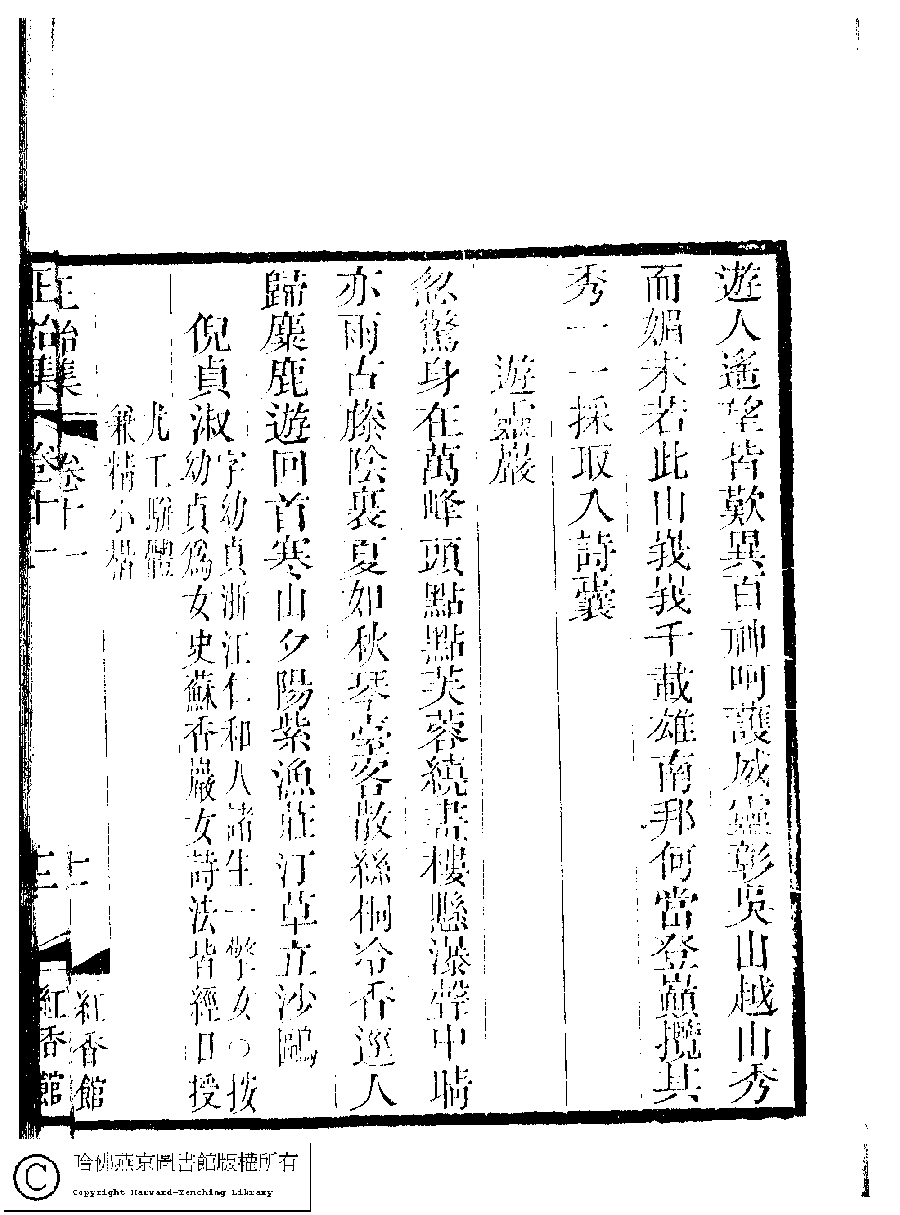 遊人遙望皆歎異百神呵護威靈彰吳山越山秀
而媚未若此山峩峩千載雄南邦何當登巔攬其
秀一一採取入詩囊
遊靈巖
忽驚身在萬峰頭點點芙蓉繞畫樓懸瀑聲中晴
亦雨古藤陰裏夏如秋琴臺客散絲桐冷香逕人
歸麋鹿遊回首寒山夕陽紫漁莊汀草立沙鷗
倪貞淑
字幼貞浙江仁和人諸生一擎女○按
幼貞為女史蘇香巖女詩法皆經口授
尤工駢體
兼精小楷
正始集
卷十一
紅香館
哈佛燕京圖書館版權所有
Copyright Harvard-Yenching Library